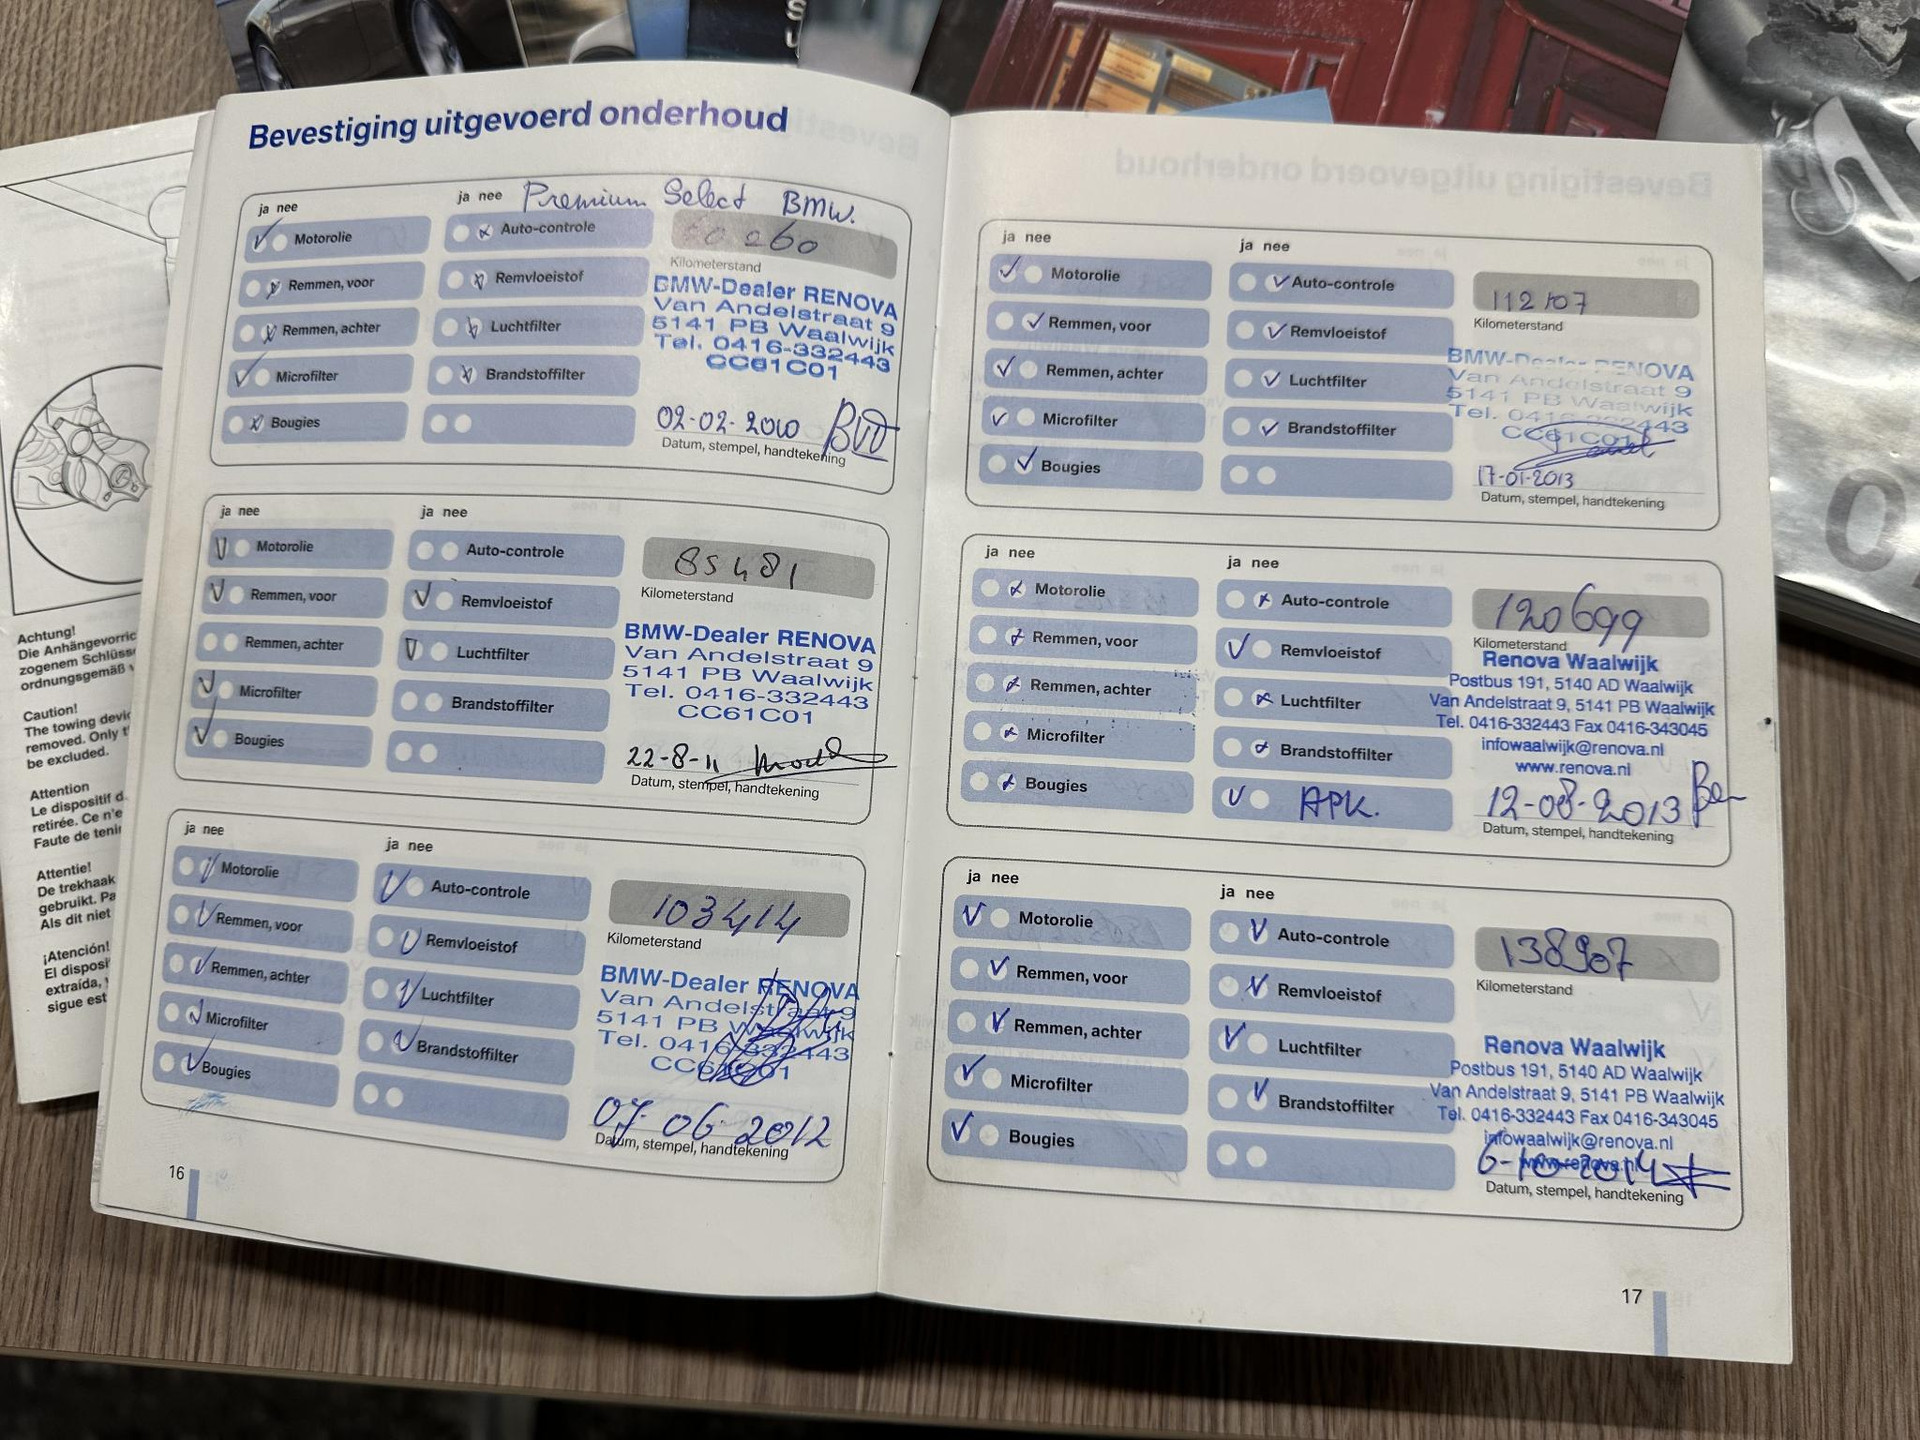 Bevestiging uitgevoerd onderhoud
ja nee
ja nee
Premium Select BMW.
Motorolie
Auto-controle
Remmen, voor
Remvloeistof
Remmen, achter
Luchtfilter
Microfilter
Brandstoffilter
Bougies
60260
Kilometerstand
BMW-Dealer RENOVA
Van Andelstraat 9
5141 PB Waalwijk
Tel. 0416-332443
CC61C01
02-02-2010
Datum, stempel, handtekening
ja nee
ja nee
Motorolie
Auto-controle
Remmen, voor
Remvloeistof
Remmen, achter
Luchtfilter
Microfilter
Brandstoffilter
Bougies
85481
Kilometerstand
BMW-Dealer RENOVA
Van Andelstraat 9
5141 PB Waalwijk
Tel. 0416-332443
CC61C01
22-8-11
Datum, stempel, handtekening
ja nee
ja nee
Motorolie
Auto-controle
Remmen, voor
Remvloeistof
Remmen, achter
Luchtfilter
Microfilter
Brandstoffilter
Bougies
103414
Kilometerstand
BMW-Dealer RENOVA
Van Andelstraat 9
5141 PB Waalwijk
Tel. 0416-332443
CC61C01
07-06-2012
Datum, stempel, handtekening
16
ja nee
ja nee
Motorolie
Auto-controle
Remmen, voor
Remvloeistof
Remmen, achter
Luchtfilter
Microfilter
Brandstoffilter
Bougies
112107
Kilometerstand
BMW-Dealer RENOVA
Van Andelstraat 9
5141 PB Waalwijk
Tel. 0416-332443
CC61C01
17-01-2013
Datum, stempel, handtekening
ja nee
ja nee
Motorolie
Auto-controle
Remmen, voor
Remvloeistof
Remmen, achter
Luchtfilter
Microfilter
Brandstoffilter
Bougies
APK.
120699
Kilometerstand
Renova Waalwijk
Postbus 191, 5140 AD Waalwijk
Van Andelstraat 9, 5141 PB Waalwijk
Tel. 0416-332443 Fax 0416-343045
infowaalwijk@renova.nl
www.renova.nl
12-08-2013
Datum, stempel, handtekening
ja nee
ja nee
Motorolie
Auto-controle
Remmen, voor
Remvloeistof
Remmen, achter
Luchtfilter
Microfilter
Brandstoffilter
Bougies
138907
Kilometerstand
Renova Waalwijk
Postbus 191, 5140 AD Waalwijk
Van Andelstraat 9, 5141 PB Waalwijk
Tel. 0416-332443 Fax 0416-343045
infowaalwijk@renova.nl
www.renova.nl
6-10-2014
Datum, stempel, handtekening
17
Achtung!
Die Anhängevorric
zogenem Schlüss
ordnungsgemäß
Caution!
The towing devi
removed. Only t
be excluded.
Attention
Le dispositif d
retirée. Ce n'e
Faute de teni
Attentie!
De trekhaak
gebruikt. Pa
Als dit niet
¡Atención!
El disposi
extraída,
sigue est